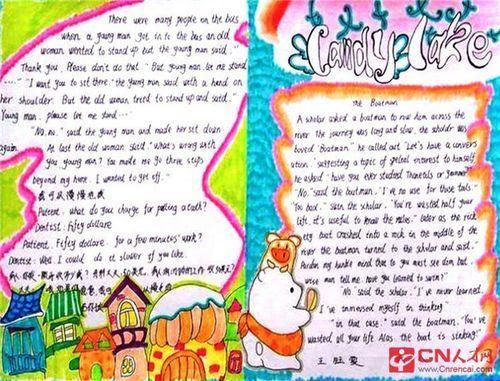 There were many people on the bus
when a young man got in to the bus an old
woman wanted to stand up but the young man said."
Thank you. Please don't do that " But young man let me stand
...." "I want you to sit there." the young man said with a hand on
her shoulder. But the old woman tried to stand up and said."
Young man. please let me stand...
"No.no." said the young man and made her sit down
again. At last the old woman said."what's wrong with
you young man? You made me go three stops
beyond my home. I wanted to get off."
Patient. what do you charge for pulling a tooth?
Dentist: Fifty dollare
Patient. Fifty dollare for a few minutes' work?
Dentist: Well I could do it slower if you like.
Candy Cake
The Boatman
A scholar asked a boatman to row him across the
river the journey was long and slow. the scholar was
bored Boatman." he called out "Let's have a convers
ation." suggesting a topic of special interest to himself
he asked "have you ever studied Phonetals or grammar
"No." said the boatman. "I've no use for those tools."
"Too bad." said the scholar. "You're wasted half your
life. it's useful to know the rules." Later as the rick
ety boat crashed into a rock in the middle of the
river the boatman turned to the scholar and said."
Pardon my humble mind that to you must see dim but.
wise man tell me. have you learned to swim?"
"No" said the scholar. "I've never learned.
I've immersed myself in thinking"
"in that case." said the boatman. "You've
wasted all your life. Alas the boat is sinking!"
CN人才网
www.Cnrencai.com